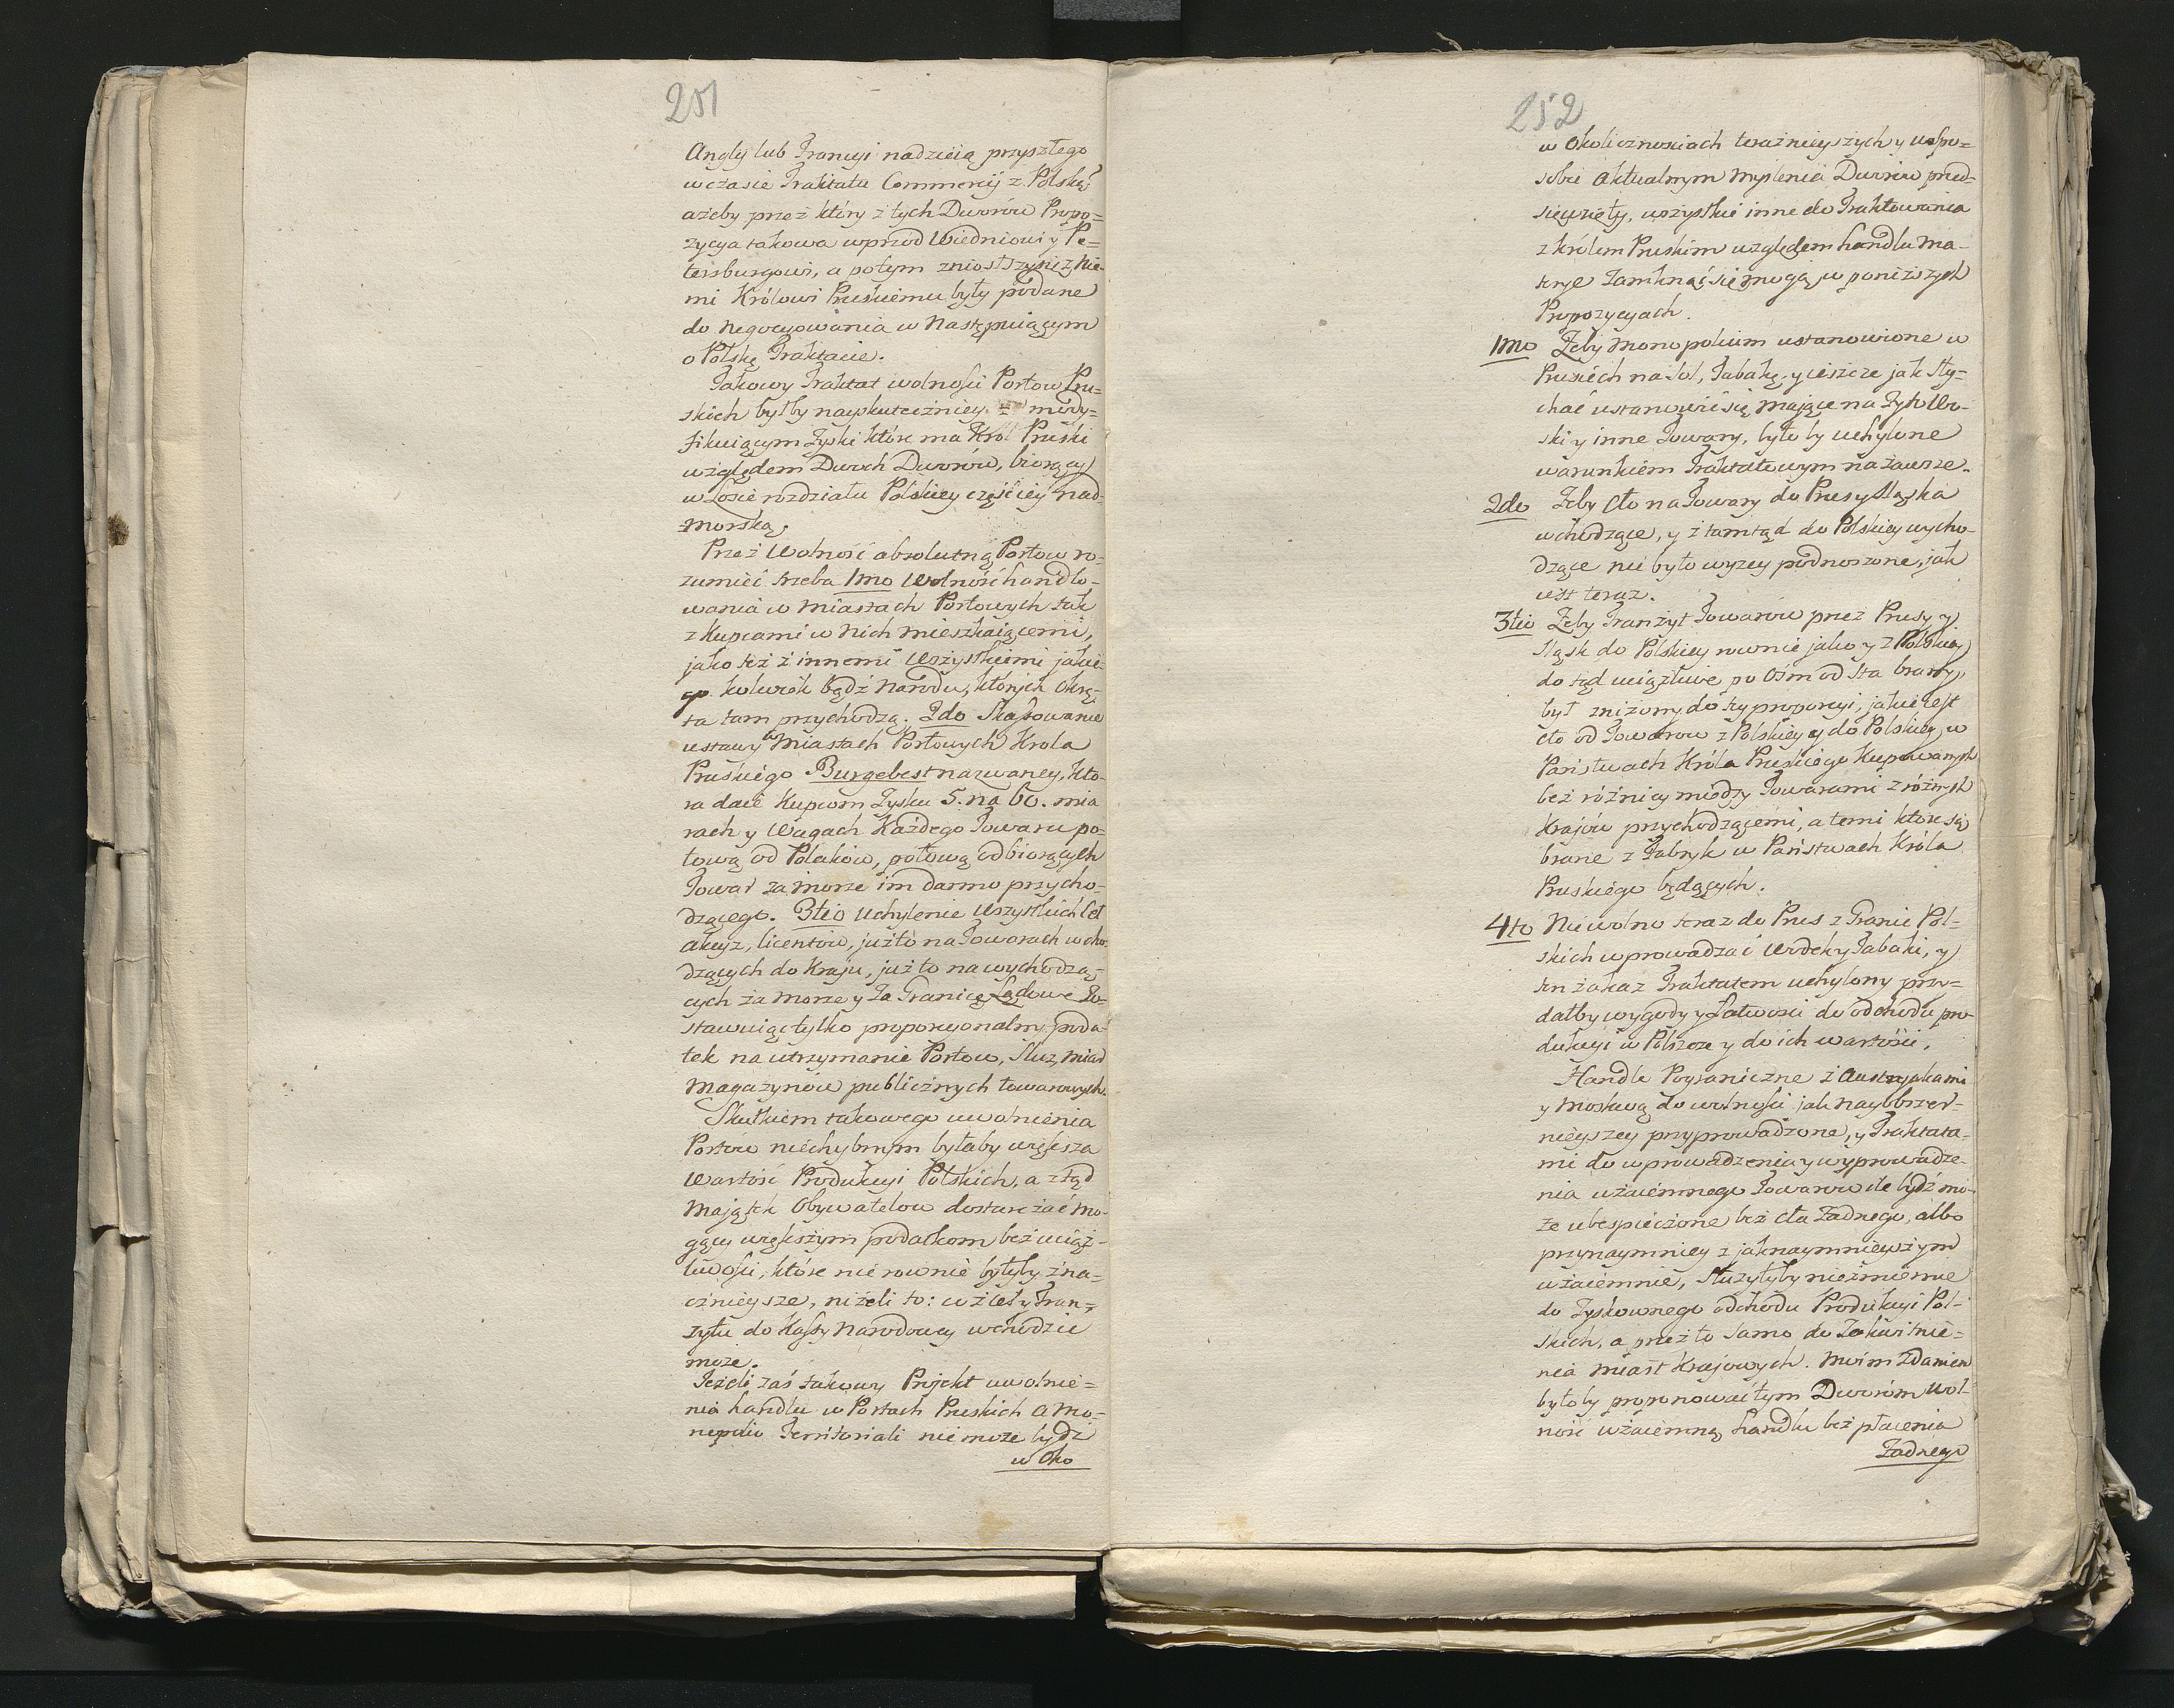 251
Anglij lub Francyi nadzieią przyszłego
w czasie Traktatu Commercij z Polską
ażeby przeź który z tych Dworów Propo=
zycya takowa wprzod Wiedniowi y Pe=
tersburgowi, a potym zniosłszy się z Nie-
mi Królowi Pruskiemu były podane
do negocyowania w Następuiącym
o Polskę Traktacie.
Takowy Traktat wolności Portow Pru=
skich byłby nayskuteczniey mody=
fikuiącym Zyski które ma Król Pruski
względem Dwoch Dworów, biorący
w Losie rozdziału Polskiey części iey nad=
morską.
Przeź Wolność absolutną Portow ro=
zumieć trzeba 1mo Wolność handlo=
wania w miastach Portowych tak
z Kupcami w Nich mieszkaiącemi,
jako też z innemi Wszystkiemi jakie=
go kolwiek bądź Narodu, których Okrę=
ta tam przychodzą. 2do Skassowanie
ustawy w Miastach Portowych Krola
Pruskiego Burgebest nazwaney, kto=
ra daie Kupcom Zysku 5. na 60. mia
rach y Wagach Każdego Towaru po=
łową od Polaków, połową odbiorących
Towar za morze im darmo przycho=
dzącego. 3tio Uchylenie Wszystkich Ceł
akcyz, licentów, już to na Towarach wcho=
dzących do Kraju, już to na wychodzą=
cych za morze y za Granicę Lądowe Zo=
stawuiąc tylko proporcyonalny poda=
tek na utrzymanie Portow, Sluz, miar
magazynów publicznych towarowych.
Skutkiem takowego uwolnienia
Portow niechybnym byłaby większa
Wartość Produkcyi Polskich, a ztąd
Maiątek Obywatelow dostarczać mo=
gący większym podatkom bez uciąż=
liwości, które nie rownie byłyby zna=
cznieysze, niżeli to: co z Ceł y Tran=
zytu do Kassy Narodowey wchodzić
może.
Jeżeli zaś takowy Projekt uwolnie=
nia handlu w Portach Pruskich a Mo=
nopolio Territoriali nie może bydź
w Oko
252
w Okolicznosciach teraźnieyszych y w spo=
sobie aktualnym myslenia Dworów przed=
sięwzięty, wszystkie inne do Traktowania
z królem Pruskim względem handlu ma=
terye zamknąć się mogą w poniższych
Propozycyach.
1mo Żeby monopolium ustanowione w
Prusiech na Sol, Tabakę, y ieszcze jak sły=
chać ustanowić się maiące na Zyto Wo-
ski y inne Towary, było by uchylone
warunkiem Traktatowym na zawsze.
2do Żeby Cło na Towary do Prus y Sląska
wchodzące, y z tamtąd do Polskiey wycho=
dzące nie było wyzey podnoszone, jak
iest teraz.
3tio Żeby Tranzyt Towarów przez Prusy y
Sląsk do Polskiey rownie jako y z Polskiey
do tąd uciążliwie po Ośm od Sta brany,
był zniżony do tey proporcyi, jakie iest
cło od Towarow z Polskiey y do Polskiey w
Państwach Króla Pruskiego Kupowanych
bez różnicy między Towarami z różnych
Krajów przychodzącemi, a temi które są
brane z Fabryk w Państwach Króla
Pruskiego będących.
4to Nie wolno teraz do Prus z Granic Pol=
skich wprowadzać Wodek y Tabaki, y
ten zakaz Traktatem uchylony przy=
dałby wygody y Łatwości do odchodu pro=
dukcyi w Polszcze y do ich wartości.
Handle Pograniczne z Austryakami
y Moskwą do wolności jak nayobszer=
nieyszey przyprowadzone, y Traktata=
mi do wprowadzenia y wyprowadze=
nia wzaiemnego Towarow ile bydź mo=
że ubespieczone bez cła Zadnego, albo
przynaymniey z jaknaymnieyszym
wzaiemnie, Służyłyby niezmiernie
do Zyskownego odchodu Produkcyi Pol=
skich, a przez to samo do Zakwitnie=
nia miast Krajowych. Moim Zdaniem
byłoby proponować tym Dworóm Wol=
ność wzaiemną handlu bez płacenia
Zadnego